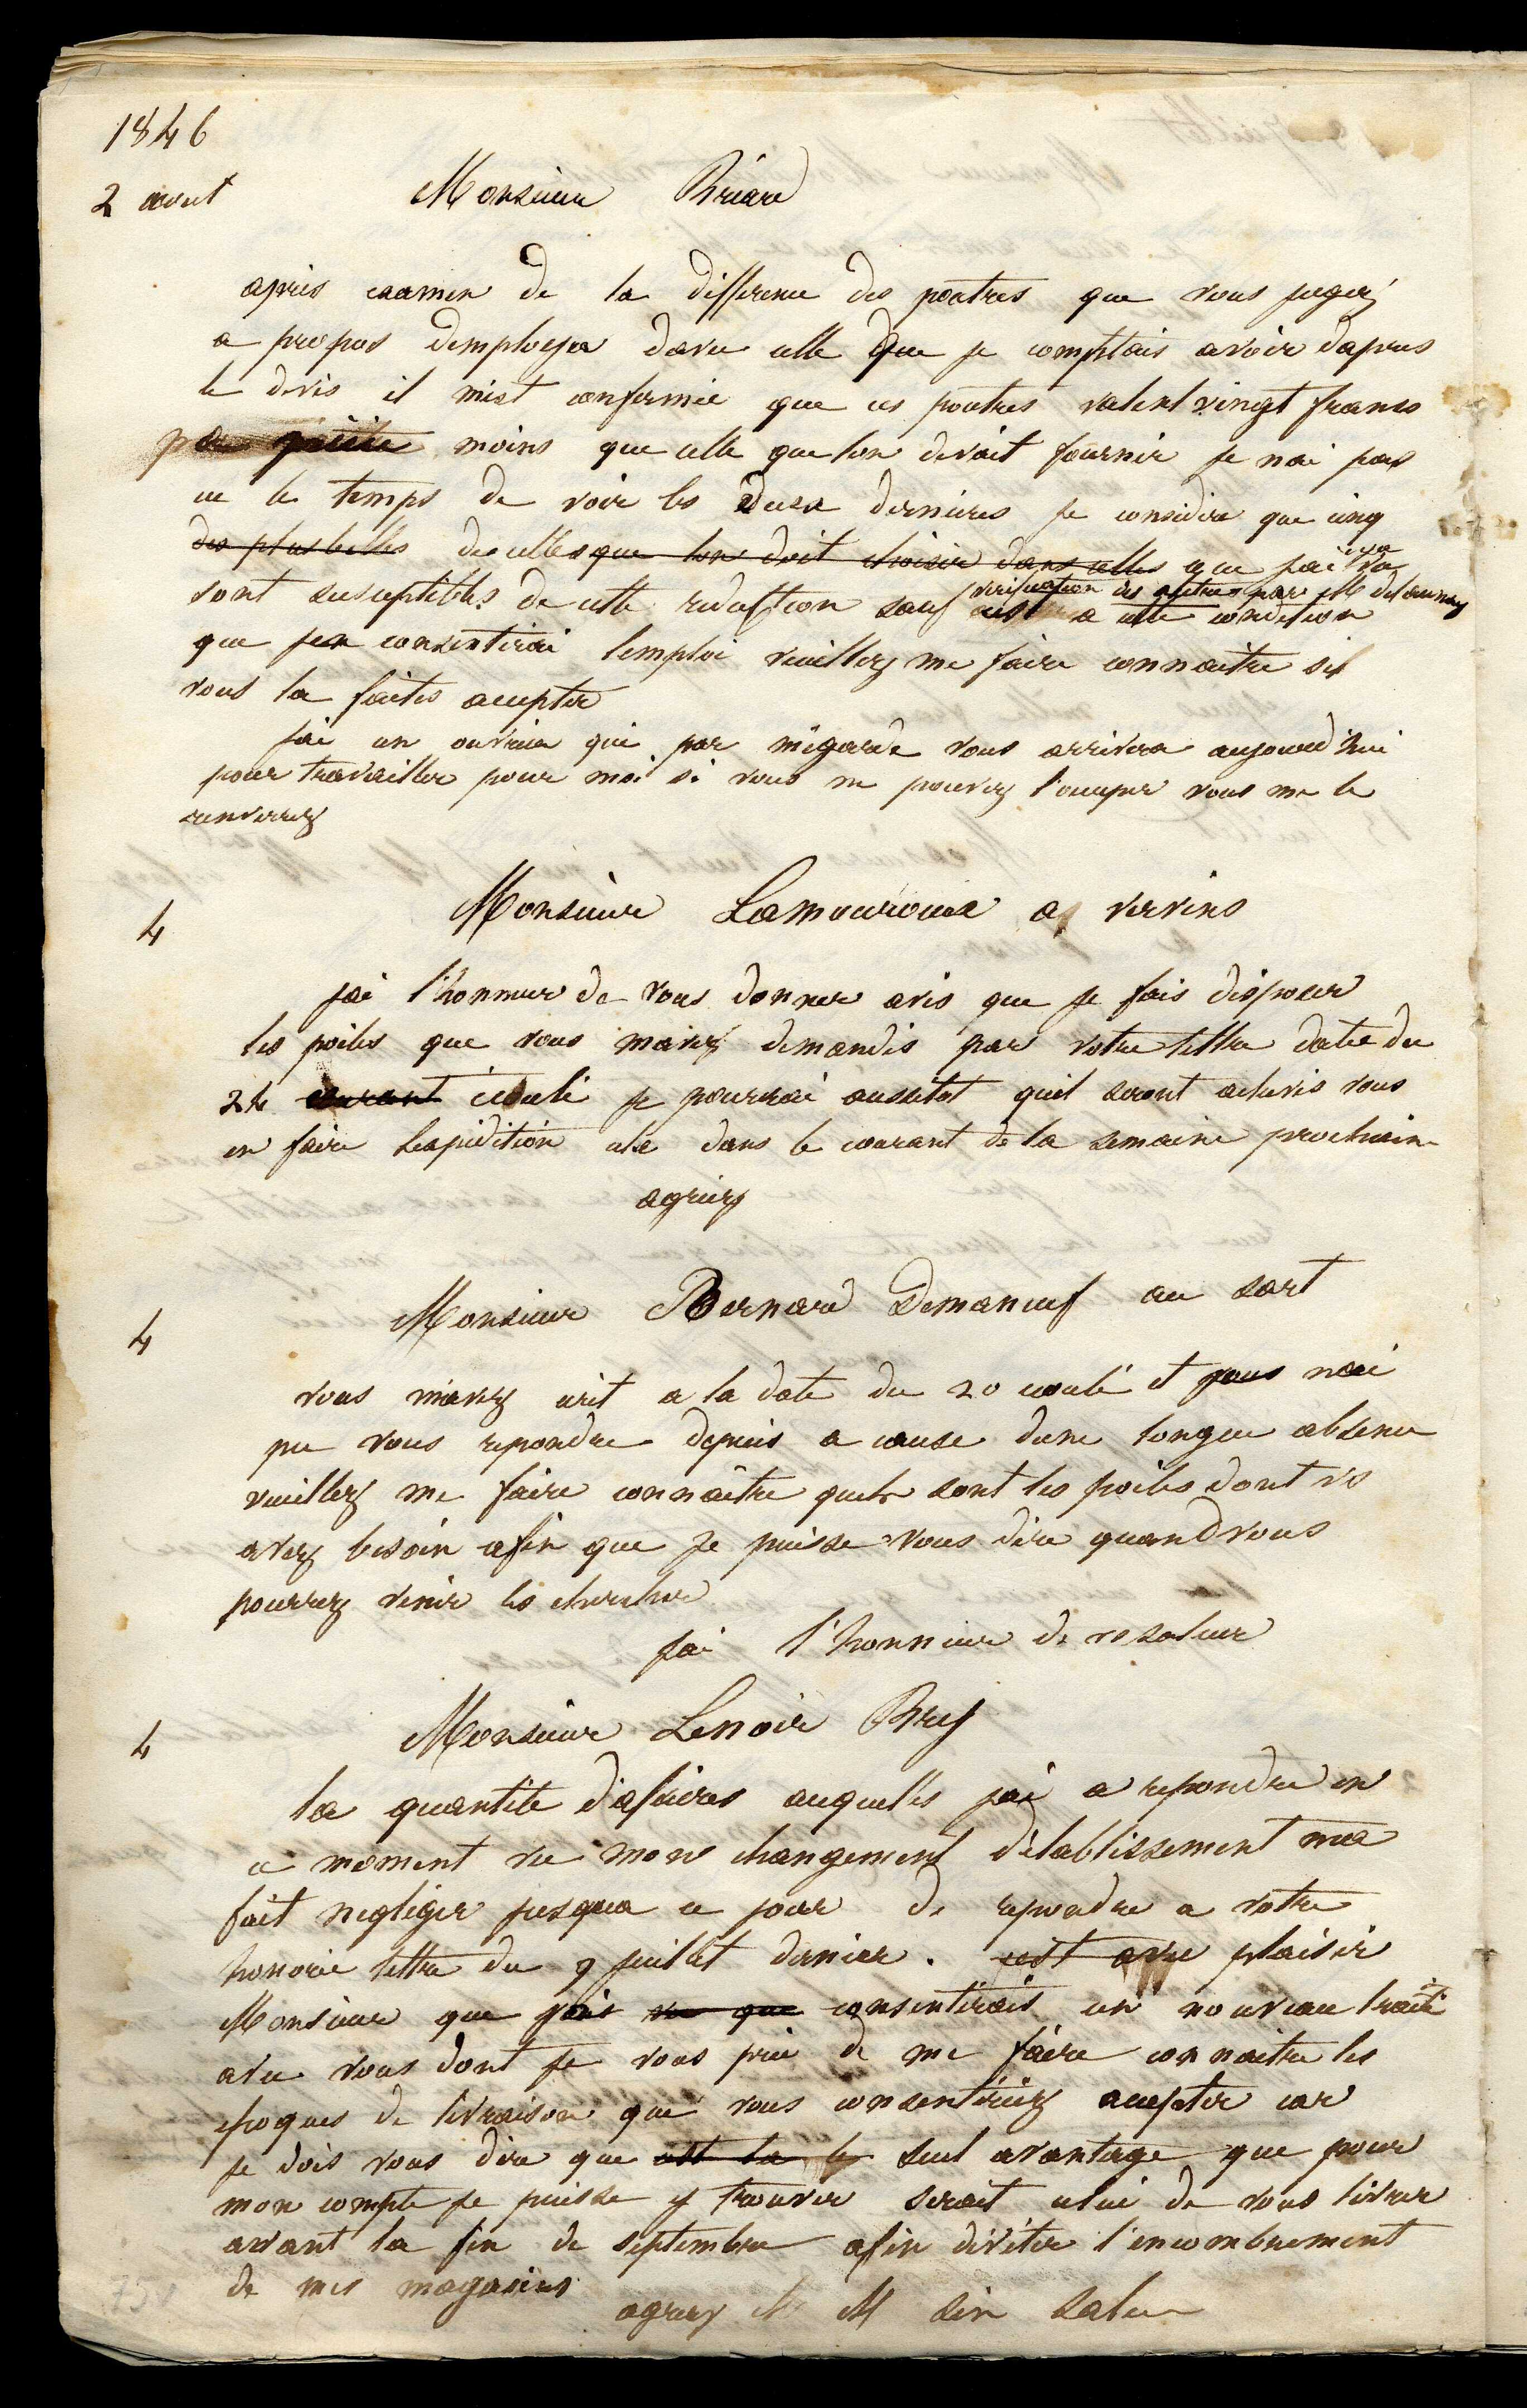 1846
2 aout Monsieur Briard
apres examen de la difference des poutres que vous jugez
a propos demployer davec celle que je comptais avoir dapres
le devis il mest confermée que ces poutres valent vingt francs
par pièce moins que celle que lon devait fournir je nai pas
eu le temps de voir les deux dernieres je considere que cinq
des plus belles de celles que lon doit choisir dans celles que jai vu
verification des autres par Mr delaunay
sont suseptibles de cette reduction sauf cest a cette condition
que jen consentirai lemploi veuillez me faire connaitre si
vous la faites accepter
jai un ouvrier qui par mégarde vous arrivera aujourd'hui
pour travailler pour moi si vous ne pouvez l'occuper vous me le
renverrez
4 Monsieur Lamouroux a vervins
jai l'honneur de vous donner avis que je fais disposer
les poiles que vous mavez demandés par votre lettre datée du
24 courant écoulé je pourrai aussitot quil seront achevés vous
en faire lexpédition cela dans le courant de la semaine prochaine
agréez
4 Monsieur Bernard Demaneuf au sart
vous m'avez ecrit a la date du 20 ecoulé et nai
pu vous repondre depuis a cause dune longue absence
veuillez me faire connaître quels sont les poiles dont vs
avez besoin afin que je puisse vous dire quand vous
pourrez venir les chercher
jai l'honneur de vs saluer
4 Monsieur Lenoir Brey
la quantité d'afaires auquelles jai a repondre en
ce moment vu mon changement d'établissement ma
fait negliger jusqua ce jour de repondre a votre
honorée lettre du 9 juillet dernier. cest avec plaisir
Monsieur que vu que consentirais un nouveau traité
avec vous dont je vous prie de me faire connaitre les
epoques de livraison que vous consentiriez accepter car
je dois vous dire que cest la le seul avantage que pour
mon compte je puisse y trouver serait celui de vous livrer
avant la fin de septembre afin déviter l'encombrement
de mes magasins
agreez M sin salu
750